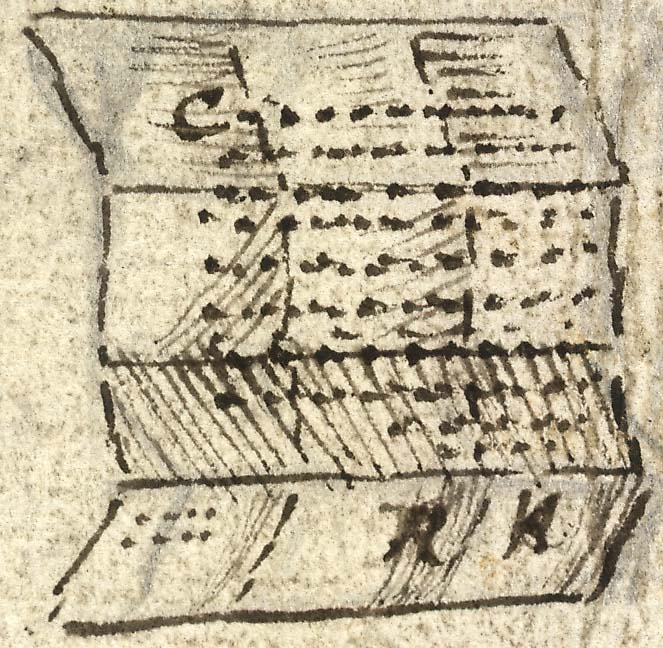 C
R K